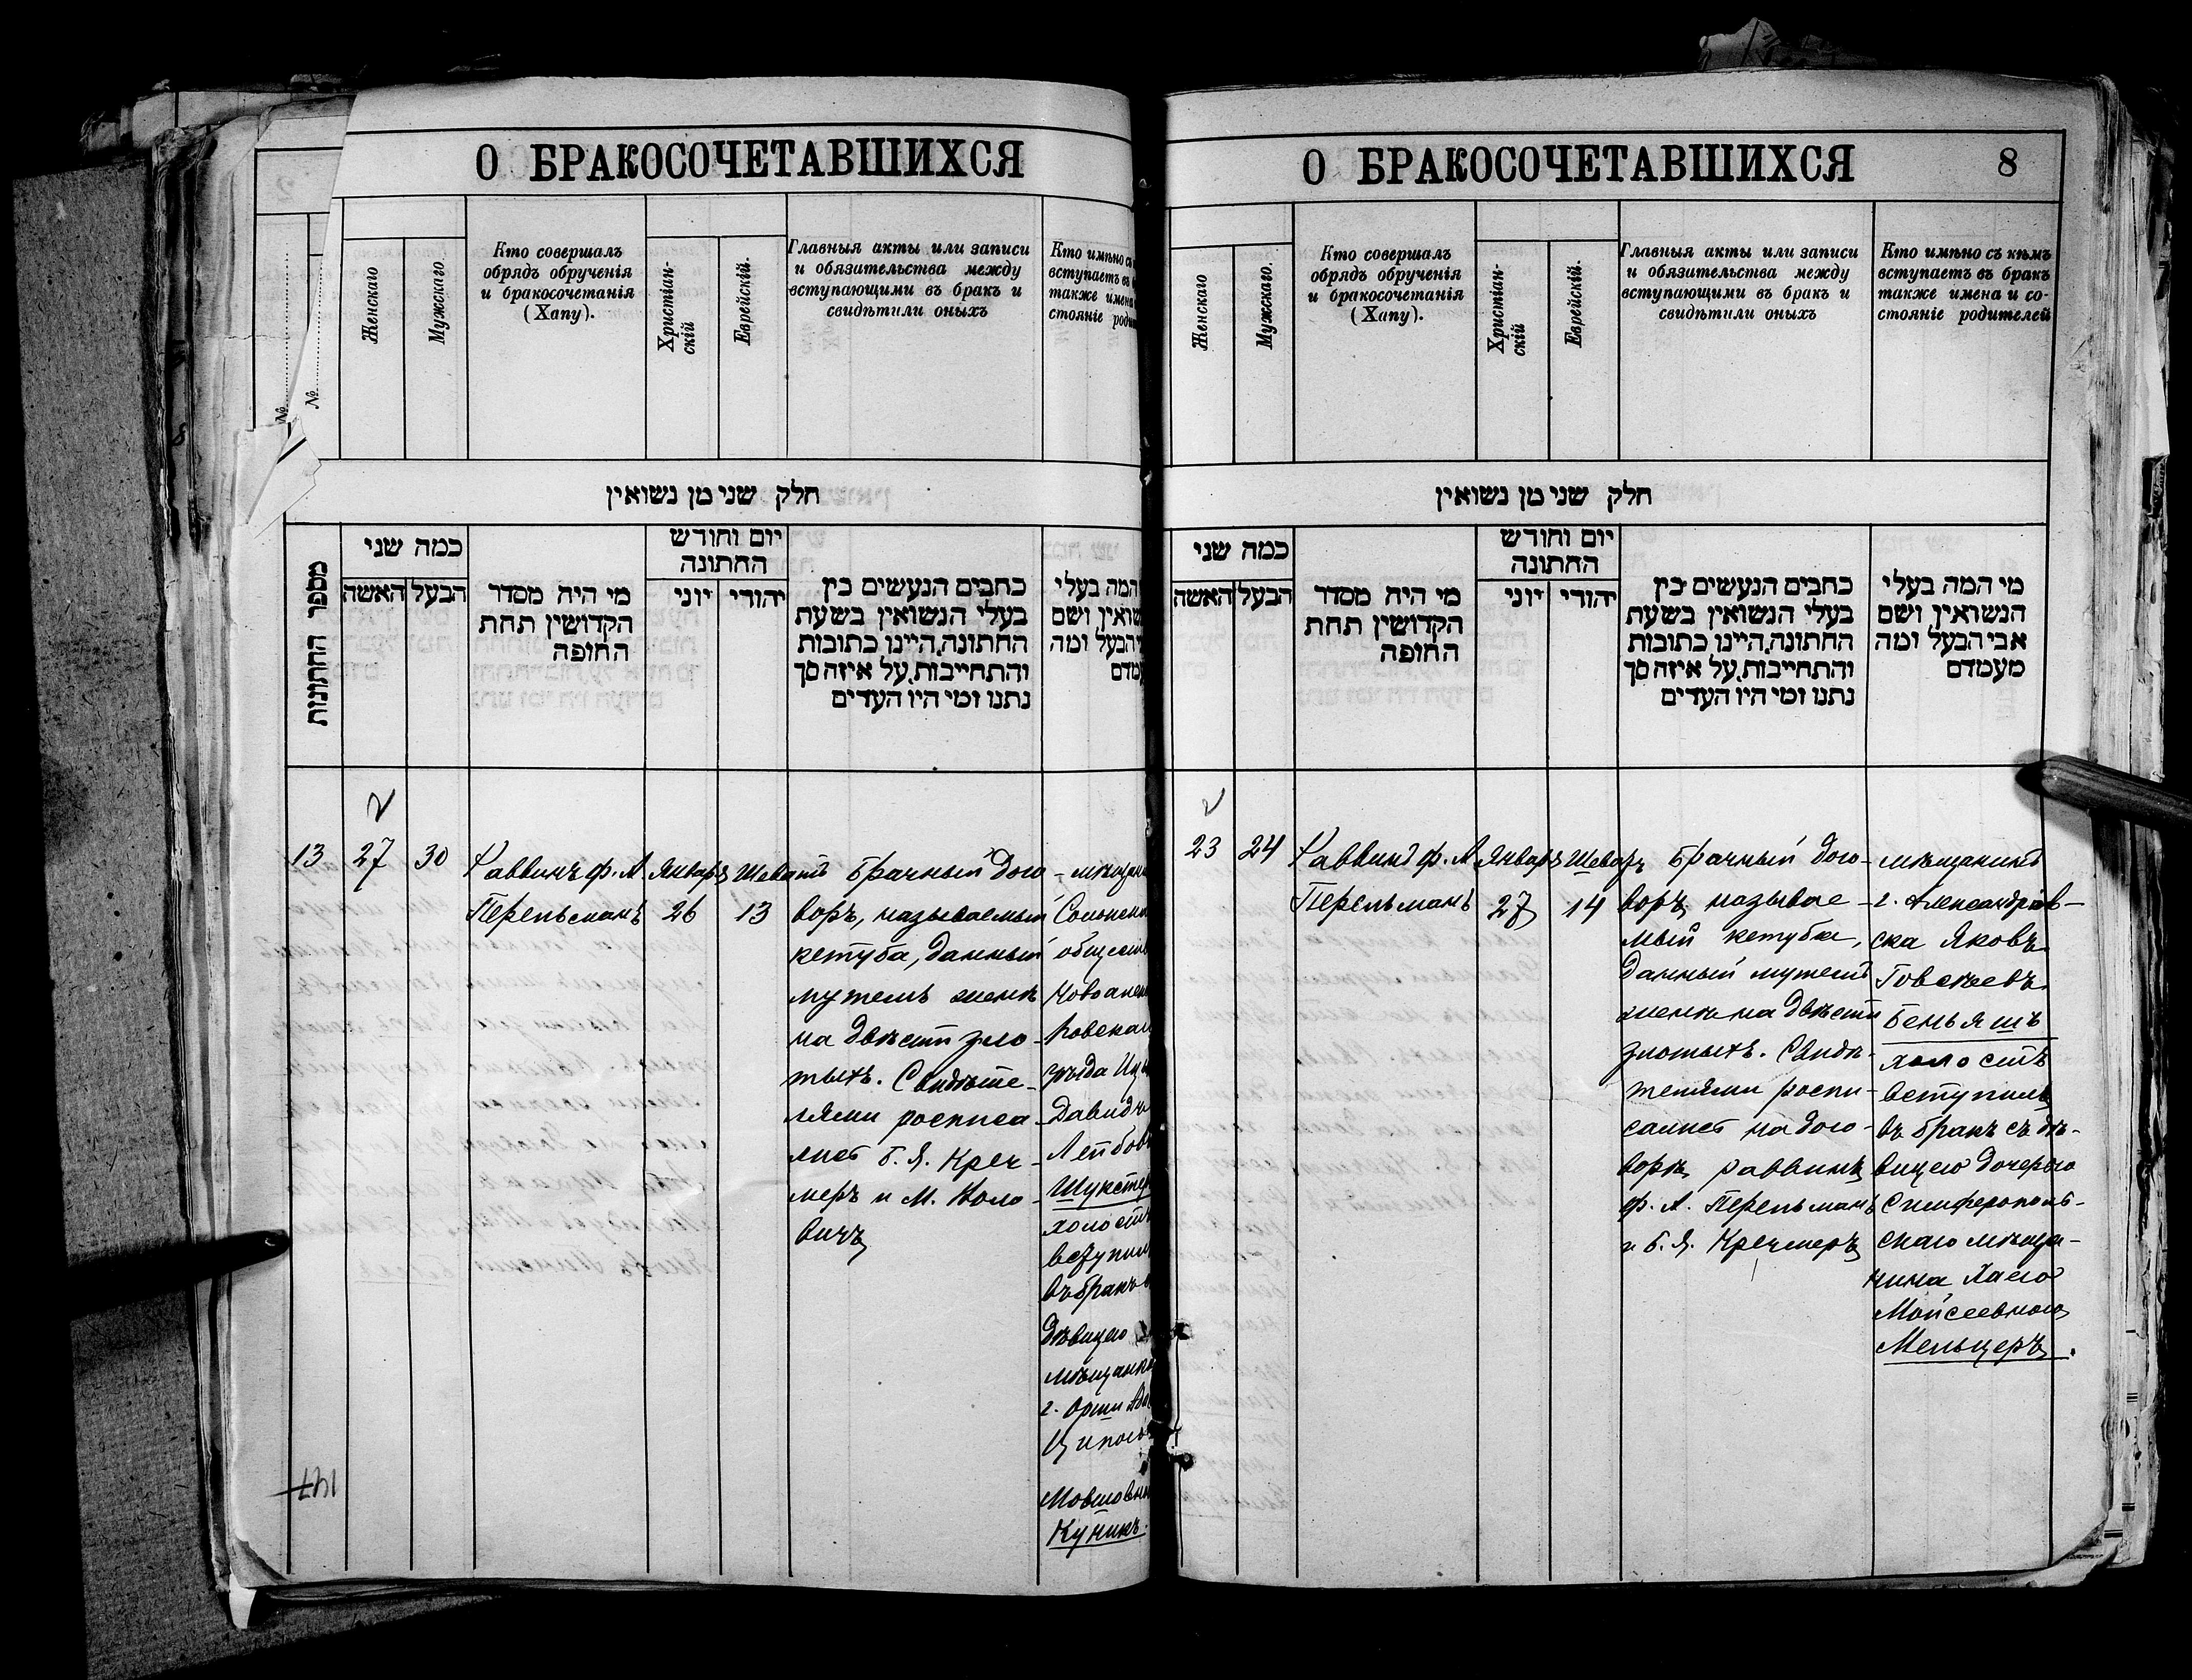 О БРАКОСОЧЕТАВШИХСЯ
№
№
Женскаго
Мужскаго
Кто совершалъ
обрядъ обрученія
и бракосочетанія
(Хапу).
Христіан-
скій
Еврейскій.
Главныя акты или записи
и обязательства между
вступающими въ бракъ и
свидѣтили оныхъ
Кто имѣно съ
вступаетъ въ
также имена
стояніе
חלק שני מן נשואין
מספר החתונות
כמה שני
האשה
הבעל
מי היה מסדר
הקדושין תחת
החופה
יום וחודש
החתונה
יוני
יהודי
כתבים הנעשים בין
בעלי הנשואין בשעת
החתונה, היינו כתובות
והתחייבות, על איזה סך
נתנו ומי היו העדים
המה בעלי
ושם
הבעל ומה
13
27
30
Раввинъ Ф. А
Перельманъ
Январь
26
Шеватъ
13
Брачный дого-
воръ, называемый
кетуба, данный
мужемъ женѣ
на двѣсти зло-
тыхъ. Свидѣте-
лями росписа
лись Б. Я. Креч-
меръ и М. Воло-
вичъ
Давидъ
холостъ
вступил
въ бракъ
дѣвицею
г. Орши
Куникъ.
147
О БРАКОСОЧЕТАВШИХСЯ
8
Женскаго
Мужскаго.
Кто совершалъ
обрядъ обрученія
и бракосочетанія
(Хапу).
Христіан-
скій
Еврейскій.
Главныя акты или записи
и обязательства между
вступающими въ бракъ и
свидѣтили оныхъ
Кто имѣно съ кѣмъ
вступаетъ въ бракъ
также имена и со-
стояніе родителей
חלק שני מן נשואין
כמה שני
האשה
הבעל
מי היה מסדר
הקדושין תחת
החופה
יום וחודש
החתונה
יוני
יהודי
כתבים הנעשים בין
בעלי הנשואין בשעת
החתונה, היינו כתובות
והתחייבות, על איזה סך
נתנו ומי היו העדים
מי המה בעלי
הנשואין, ושם
אבי הבעל ומה
מעמדם
23
24
Раввинъ Ф. А
Перельманъ
Январь
27
14
Брачный дого-
воръ называе-
мый кетуба,
данный мужемъ
женѣ на двѣсти
злотыхъ. Свидѣ-
телями роспи-
сались на дого-
ворѣ раввинъ
Ф. А. Перельманъ
и Б. Я. Кречмеръ
мѣщанинъ
г. Александров-
ска Яковъ
Беньяшъ
холостъ
вступилъ
въ бракъ съ дѣ-
вицею дочерью
Симферополь-
скаго мѣща-
нина Хаею
Мойсеевною
Мельцеръ.